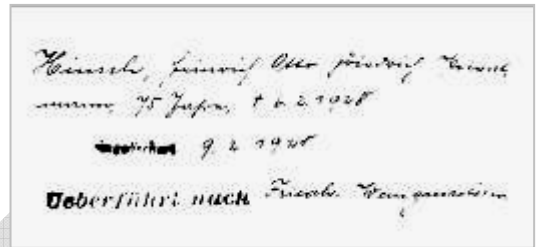 Hinsch, Heinrich Otto Friedrich
75 Jahre, † 6. 2. 1928
9. 2. 1928
Ueberführt nach Friedh.